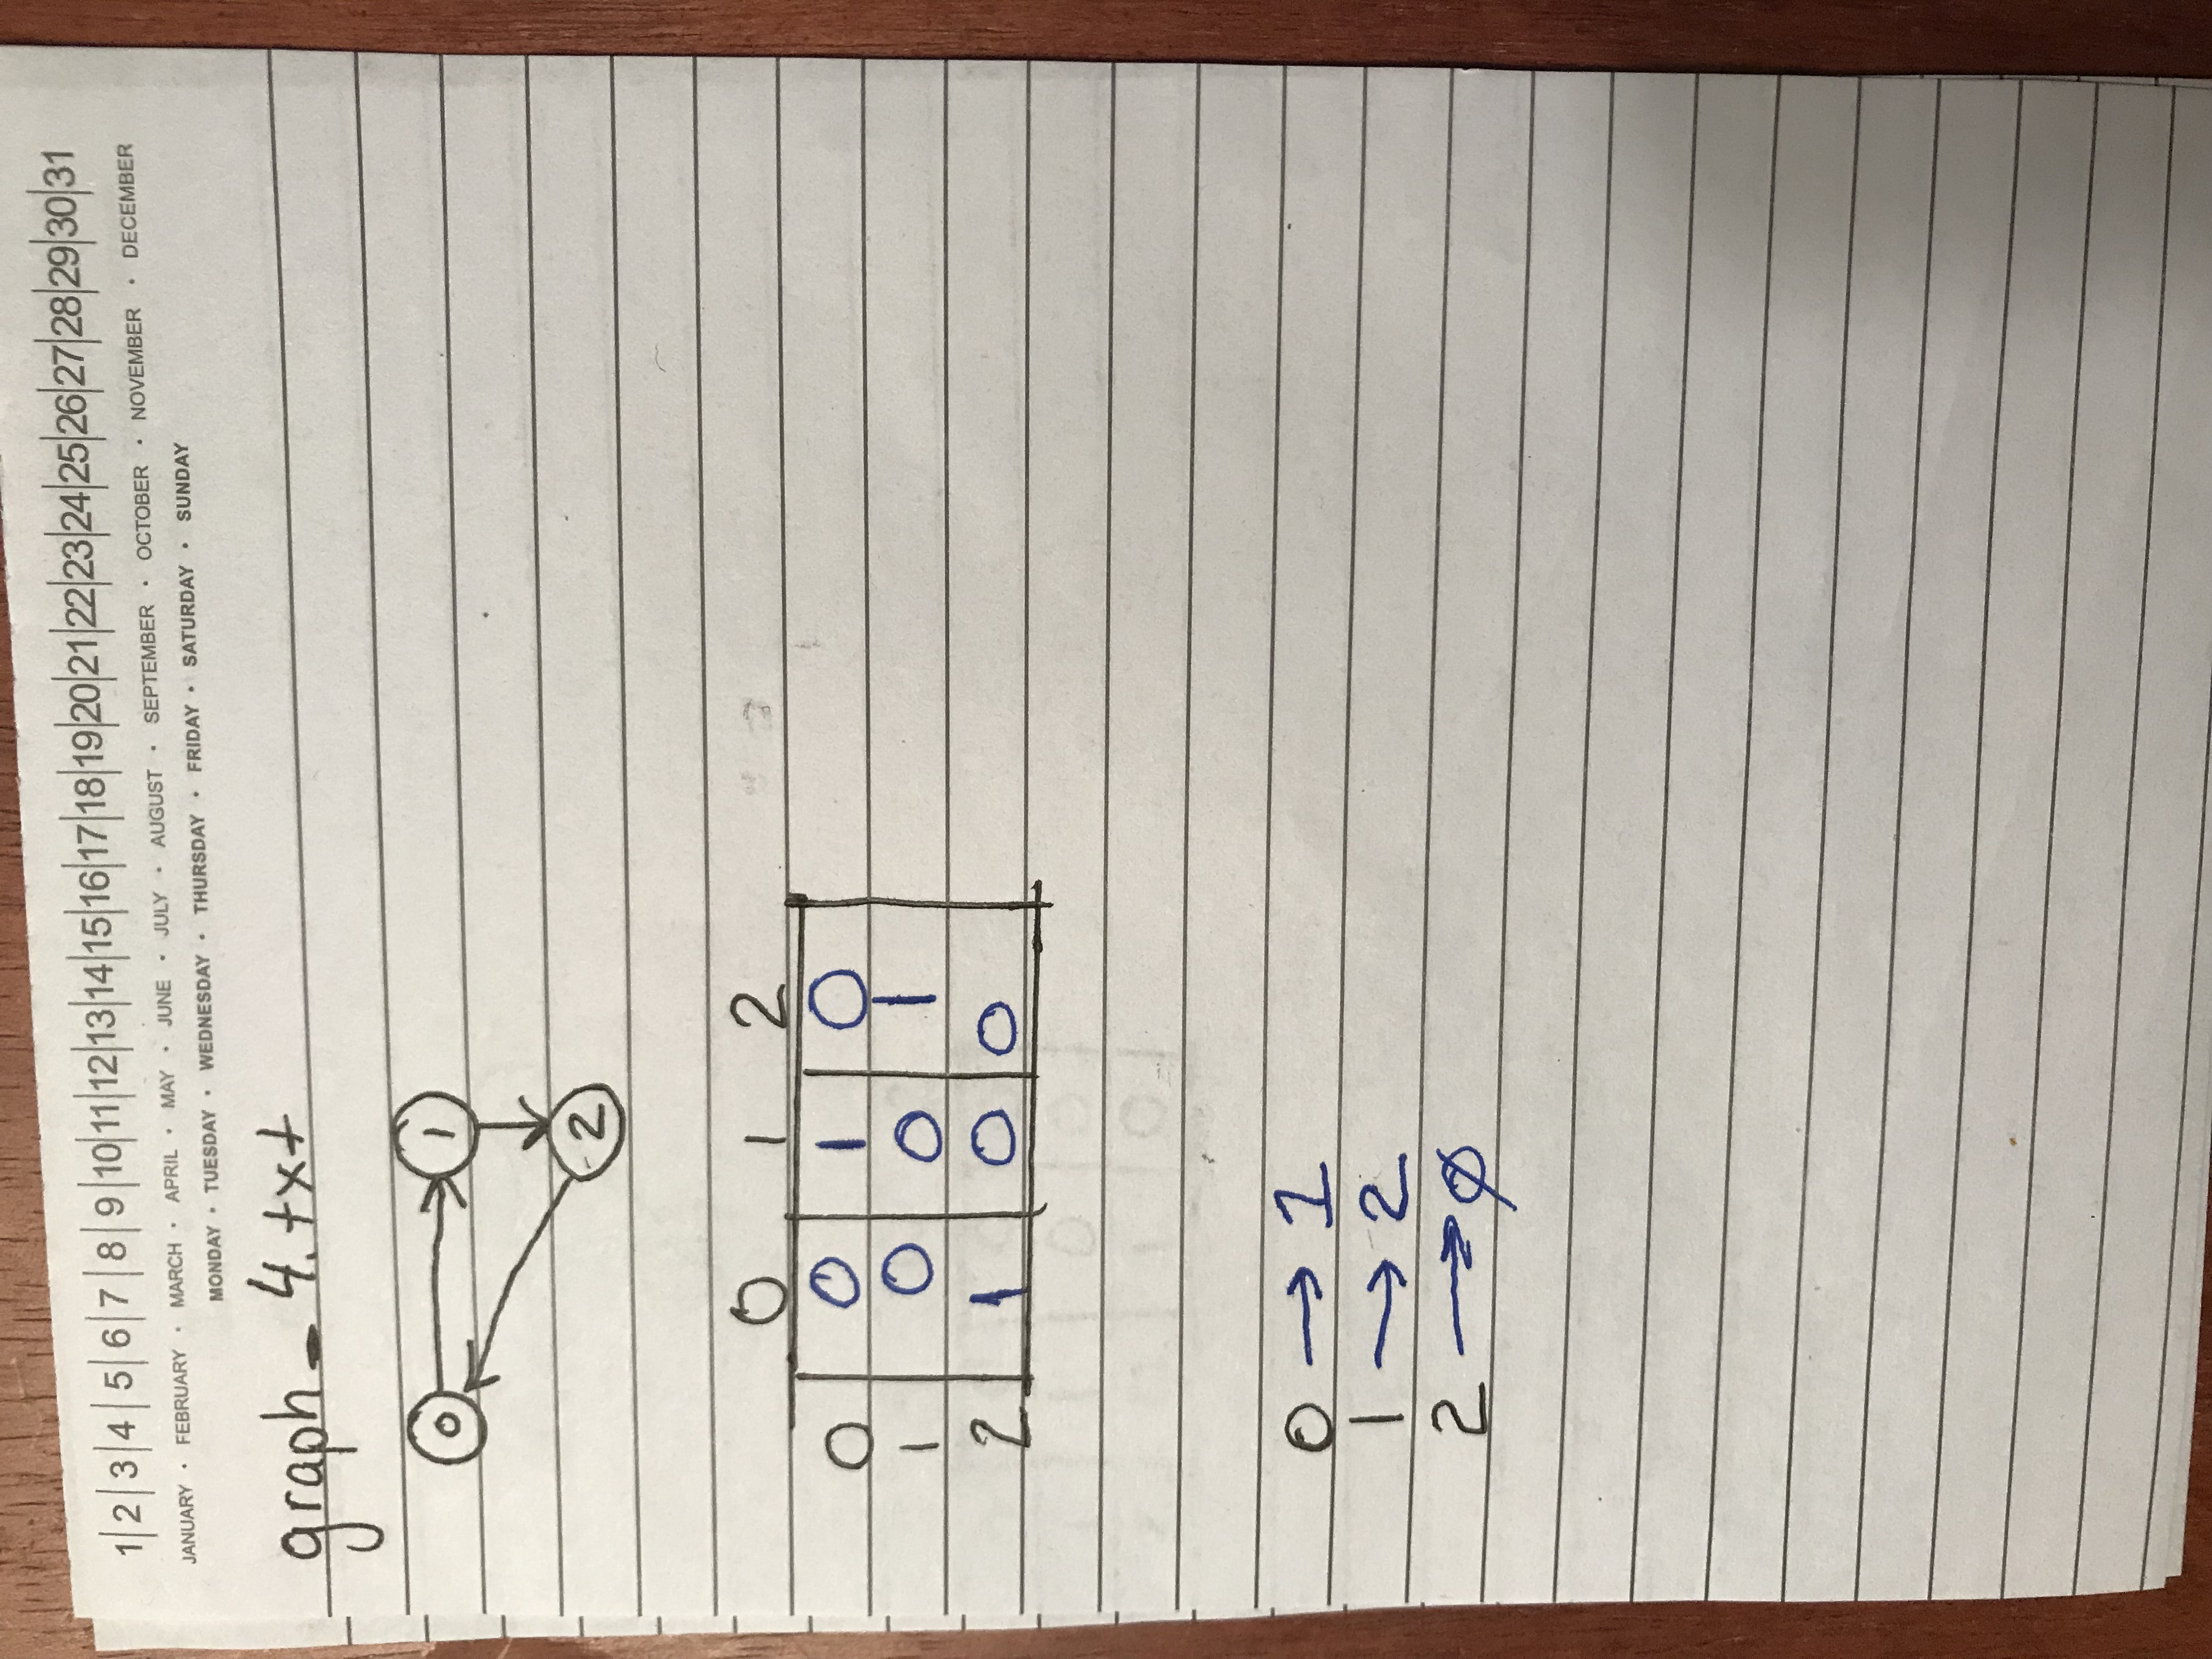 1 2 3 4 5 6 7 8 9 10 11 12 13 14 15 16 17 18 19 20 21 22 23 24 25 26 27 28 29 30 31
JANUARY • FEBRUARY • MARCH • APRIL • MAY • JUNE • JULY • AUGUST • SEPTEMBER • OCTOBER • NOVEMBER • DECEMBER
MONDAY • TUESDAY • WEDNESDAY • THURSDAY • FRIDAY • SATURDAY • SUNDAY
graph_4.txt
0 → 1
2
0 1 2
0 0 1 0
1 0 0 1
2 1 0 0
0 → 1
1 → 2
2 → 0